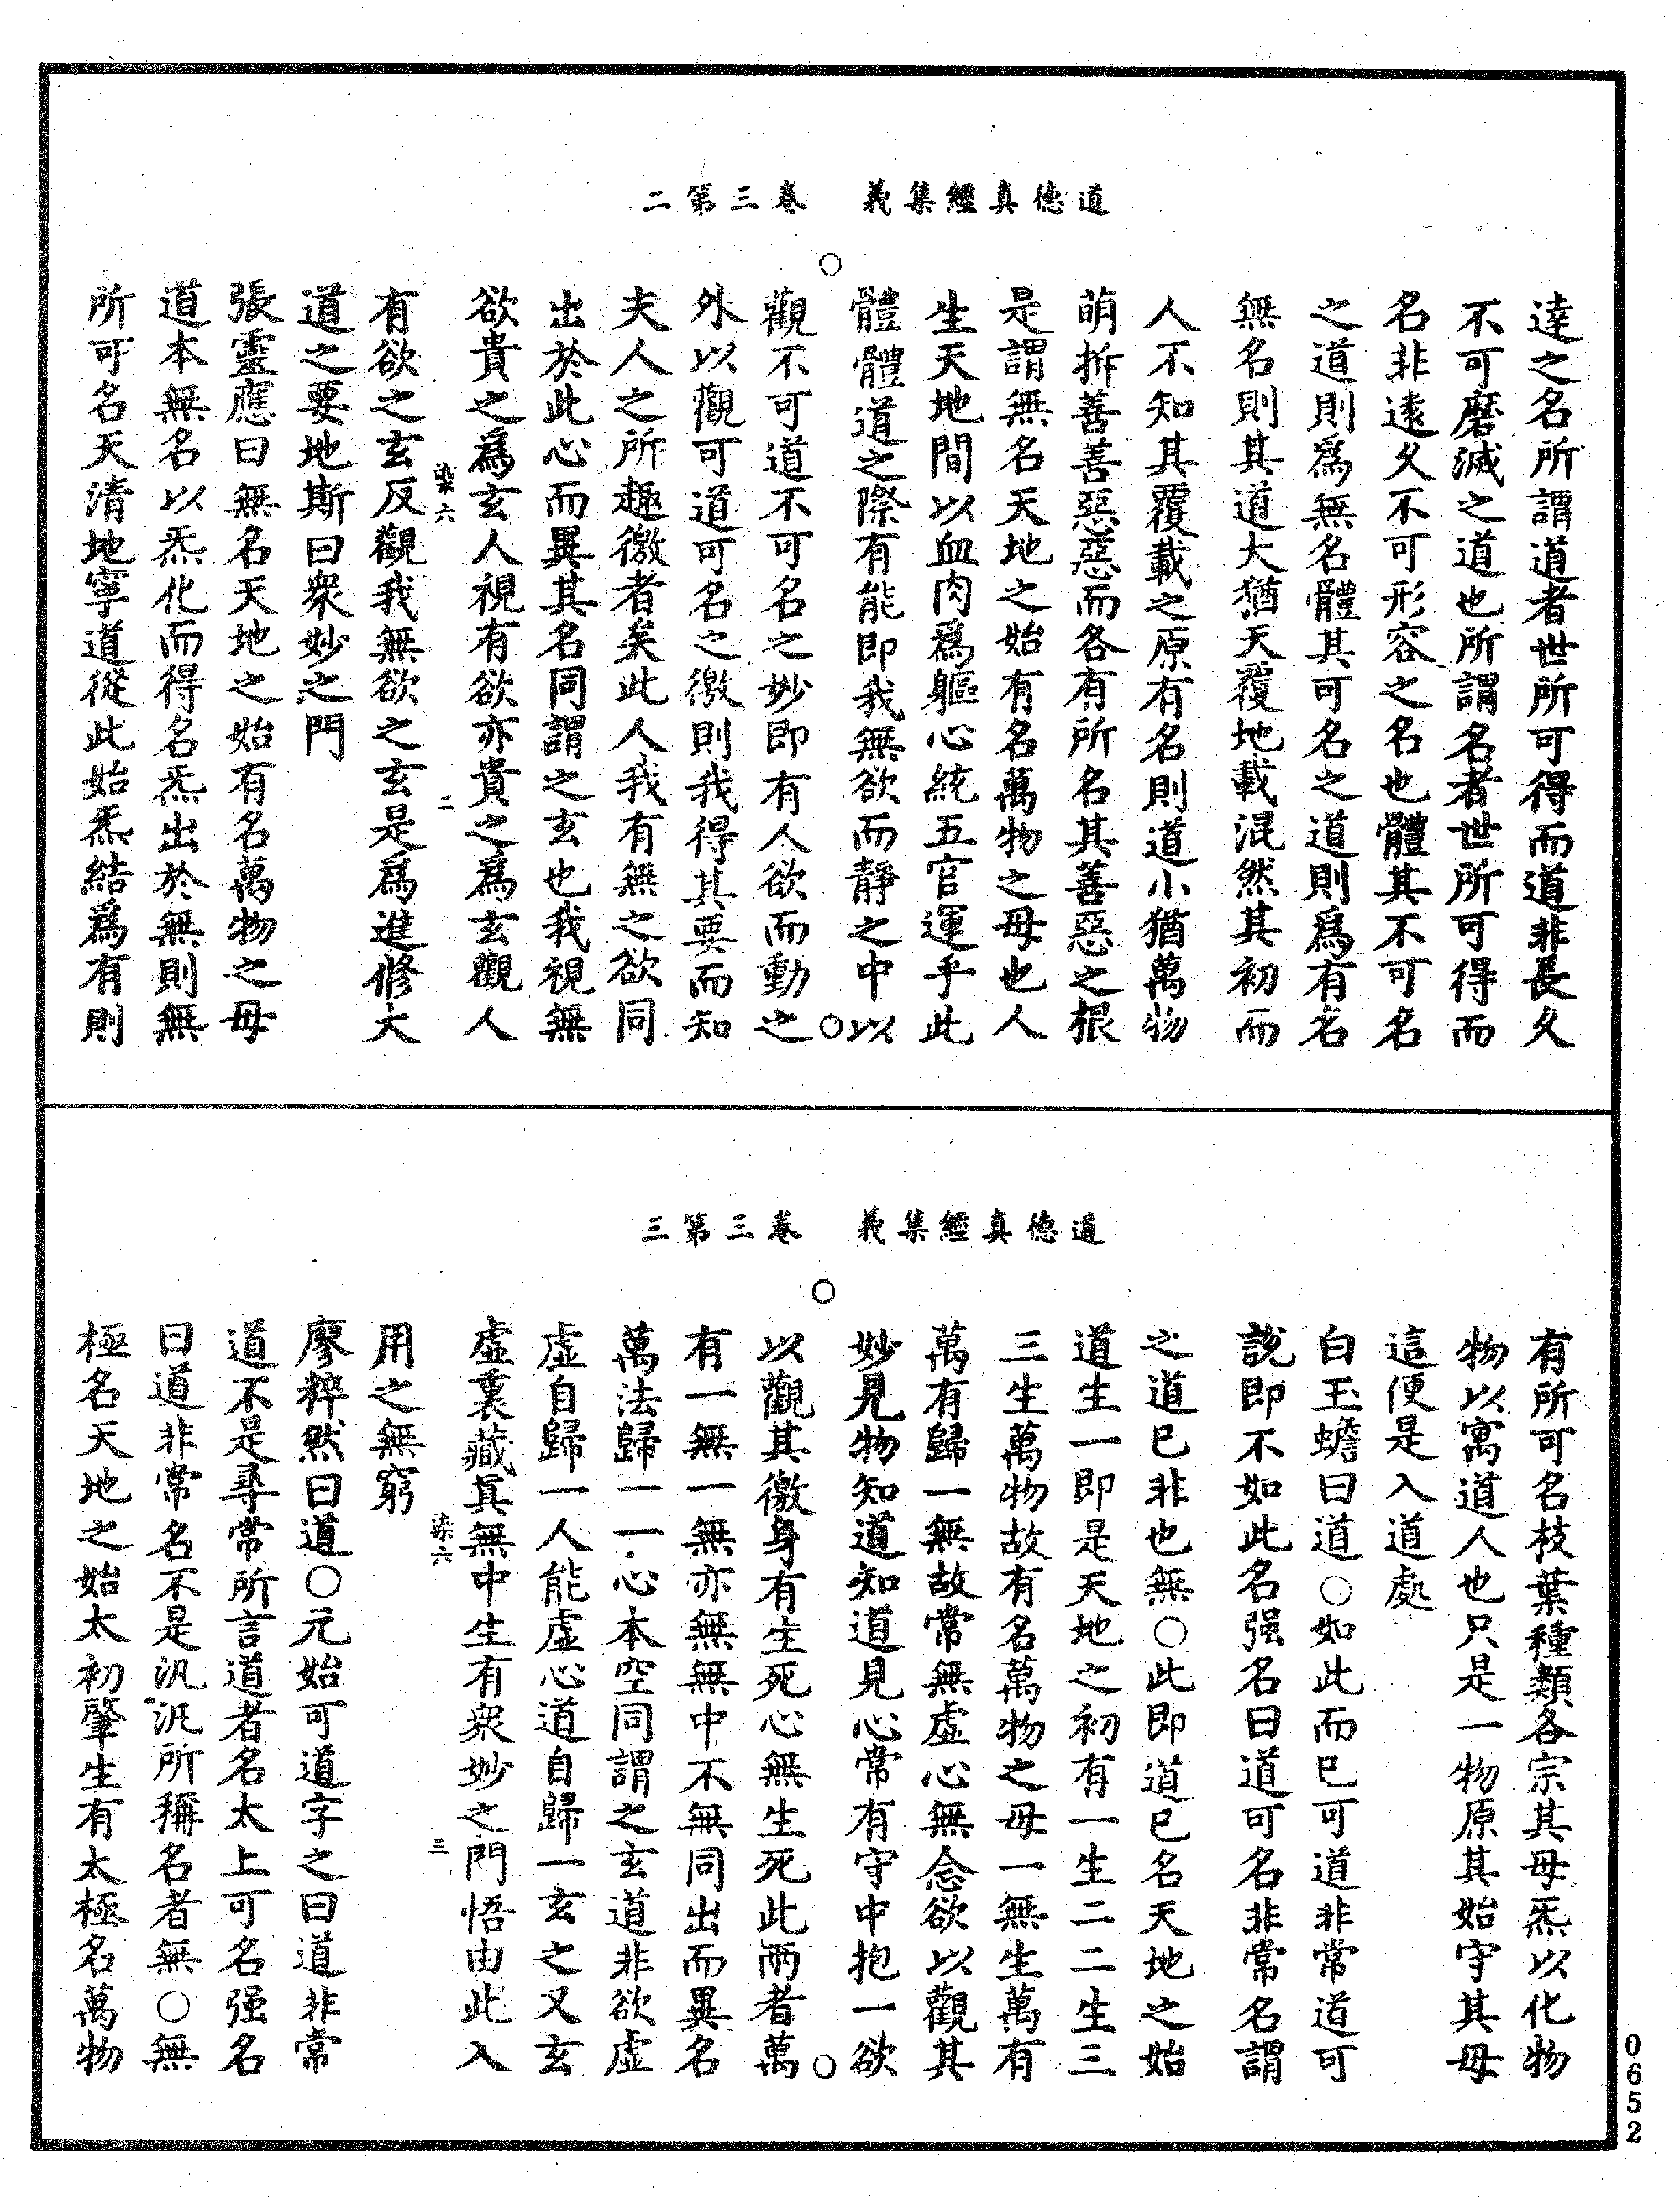 道德真經集義　卷三第二
達之名所謂道者世所可得而道非長久
不可磨滅之道也所謂名者世所可得而
名非遠久不可形容之名也體其不可名
之道則爲無名體其可名之道則爲有名
無名則其道大猶天覆地載混然其初而
人不知其覆載之原有名則道小猶萬物
萌拆善善惡惡而各有所名其善惡之根
是謂無名天地之始有名萬物之母也人
生天地間以血肉爲軀心統五官運乎此
體體道之際有能即我無欲而靜之中以
觀不可道不可名之妙即有人欲而動之
外以觀可道可名之徼則我得其要而知
夫人之所趣徼者矣此人我有無之欲同
出於此心而異其名同謂之玄也我視無
欲貴之爲玄人視有欲亦貴之爲玄觀人
染六　二
有欲之玄反觀我無欲之玄是爲進修大
道之要地斯曰衆妙之門
張靈應曰無名天地之始有名萬物之母
道本無名以炁化而得名炁出於無則無
所可名天清地寧道從此始炁結爲有則
道德真經集義　卷三第三
有所可名枝葉種類各宗其母炁以化物
物以寓道人也只是一物原其始守其母
這便是入道處
白玉蟾曰道○如此而已可道非常道可
說即不如此名强名曰道可名非常名謂
之道已非也無○此即道已名天地之始
道生一即是天地之初有一生二二生三
三生萬物故有名萬物之母一無生萬有
萬有歸一無故常無虛心無念欲以觀其
妙見物知道知道見心常有守中抱一欲
以觀其徼身有生死心無生死此兩者萬
有一無一無亦無無中不無同出而異名
萬法歸一一心本空同謂之玄道非欲虛
虛自歸一人能虛心道自歸一玄之又玄
虛裏藏眞無中生有衆妙之門悟由此入
染六　三
用之無窮
廖粹然曰道○元始可道字之曰道非常
道不是尋常所言道者名太上可名强名
曰道非常名不是汎汎所稱名者無○無
極名天地之始太初肇生有太極名萬物
0652